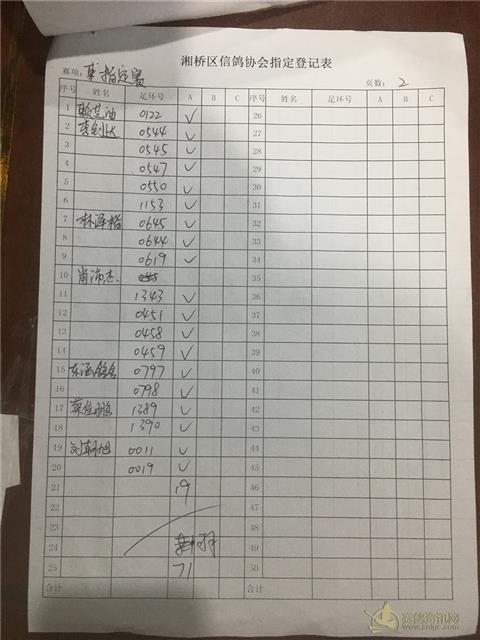 湘桥区信鸽协会指定登记表
赛项: 指定赛 页数: 2
序号 姓名 足环号 A B C 序号 姓名 足环号 A B C
1 0122 √ 26
2 0544 √ 27
3 0545 √ 28
4 0547 √ 29
5 0550 √ 30
6 1153 √ 31
7 林泽楷 0645 √ 32
8 0644 √ 33
9 0619 √ 34
10 肖沛杰 35
11 1343 √ 36
12 0451 √ 37
13 0458 √ 38
14 0459 √ 39
15 东涵鸽舍 0797 √ 40
16 0798 √ 41
17 1389 √ 42
18 1390 √ 43
19 刘朝旭 0011 √ 44
20 0019 √ 45
21 19 46
22 47
23 48
24 49
25 71 50
合计 合计
赛鸽资讯网